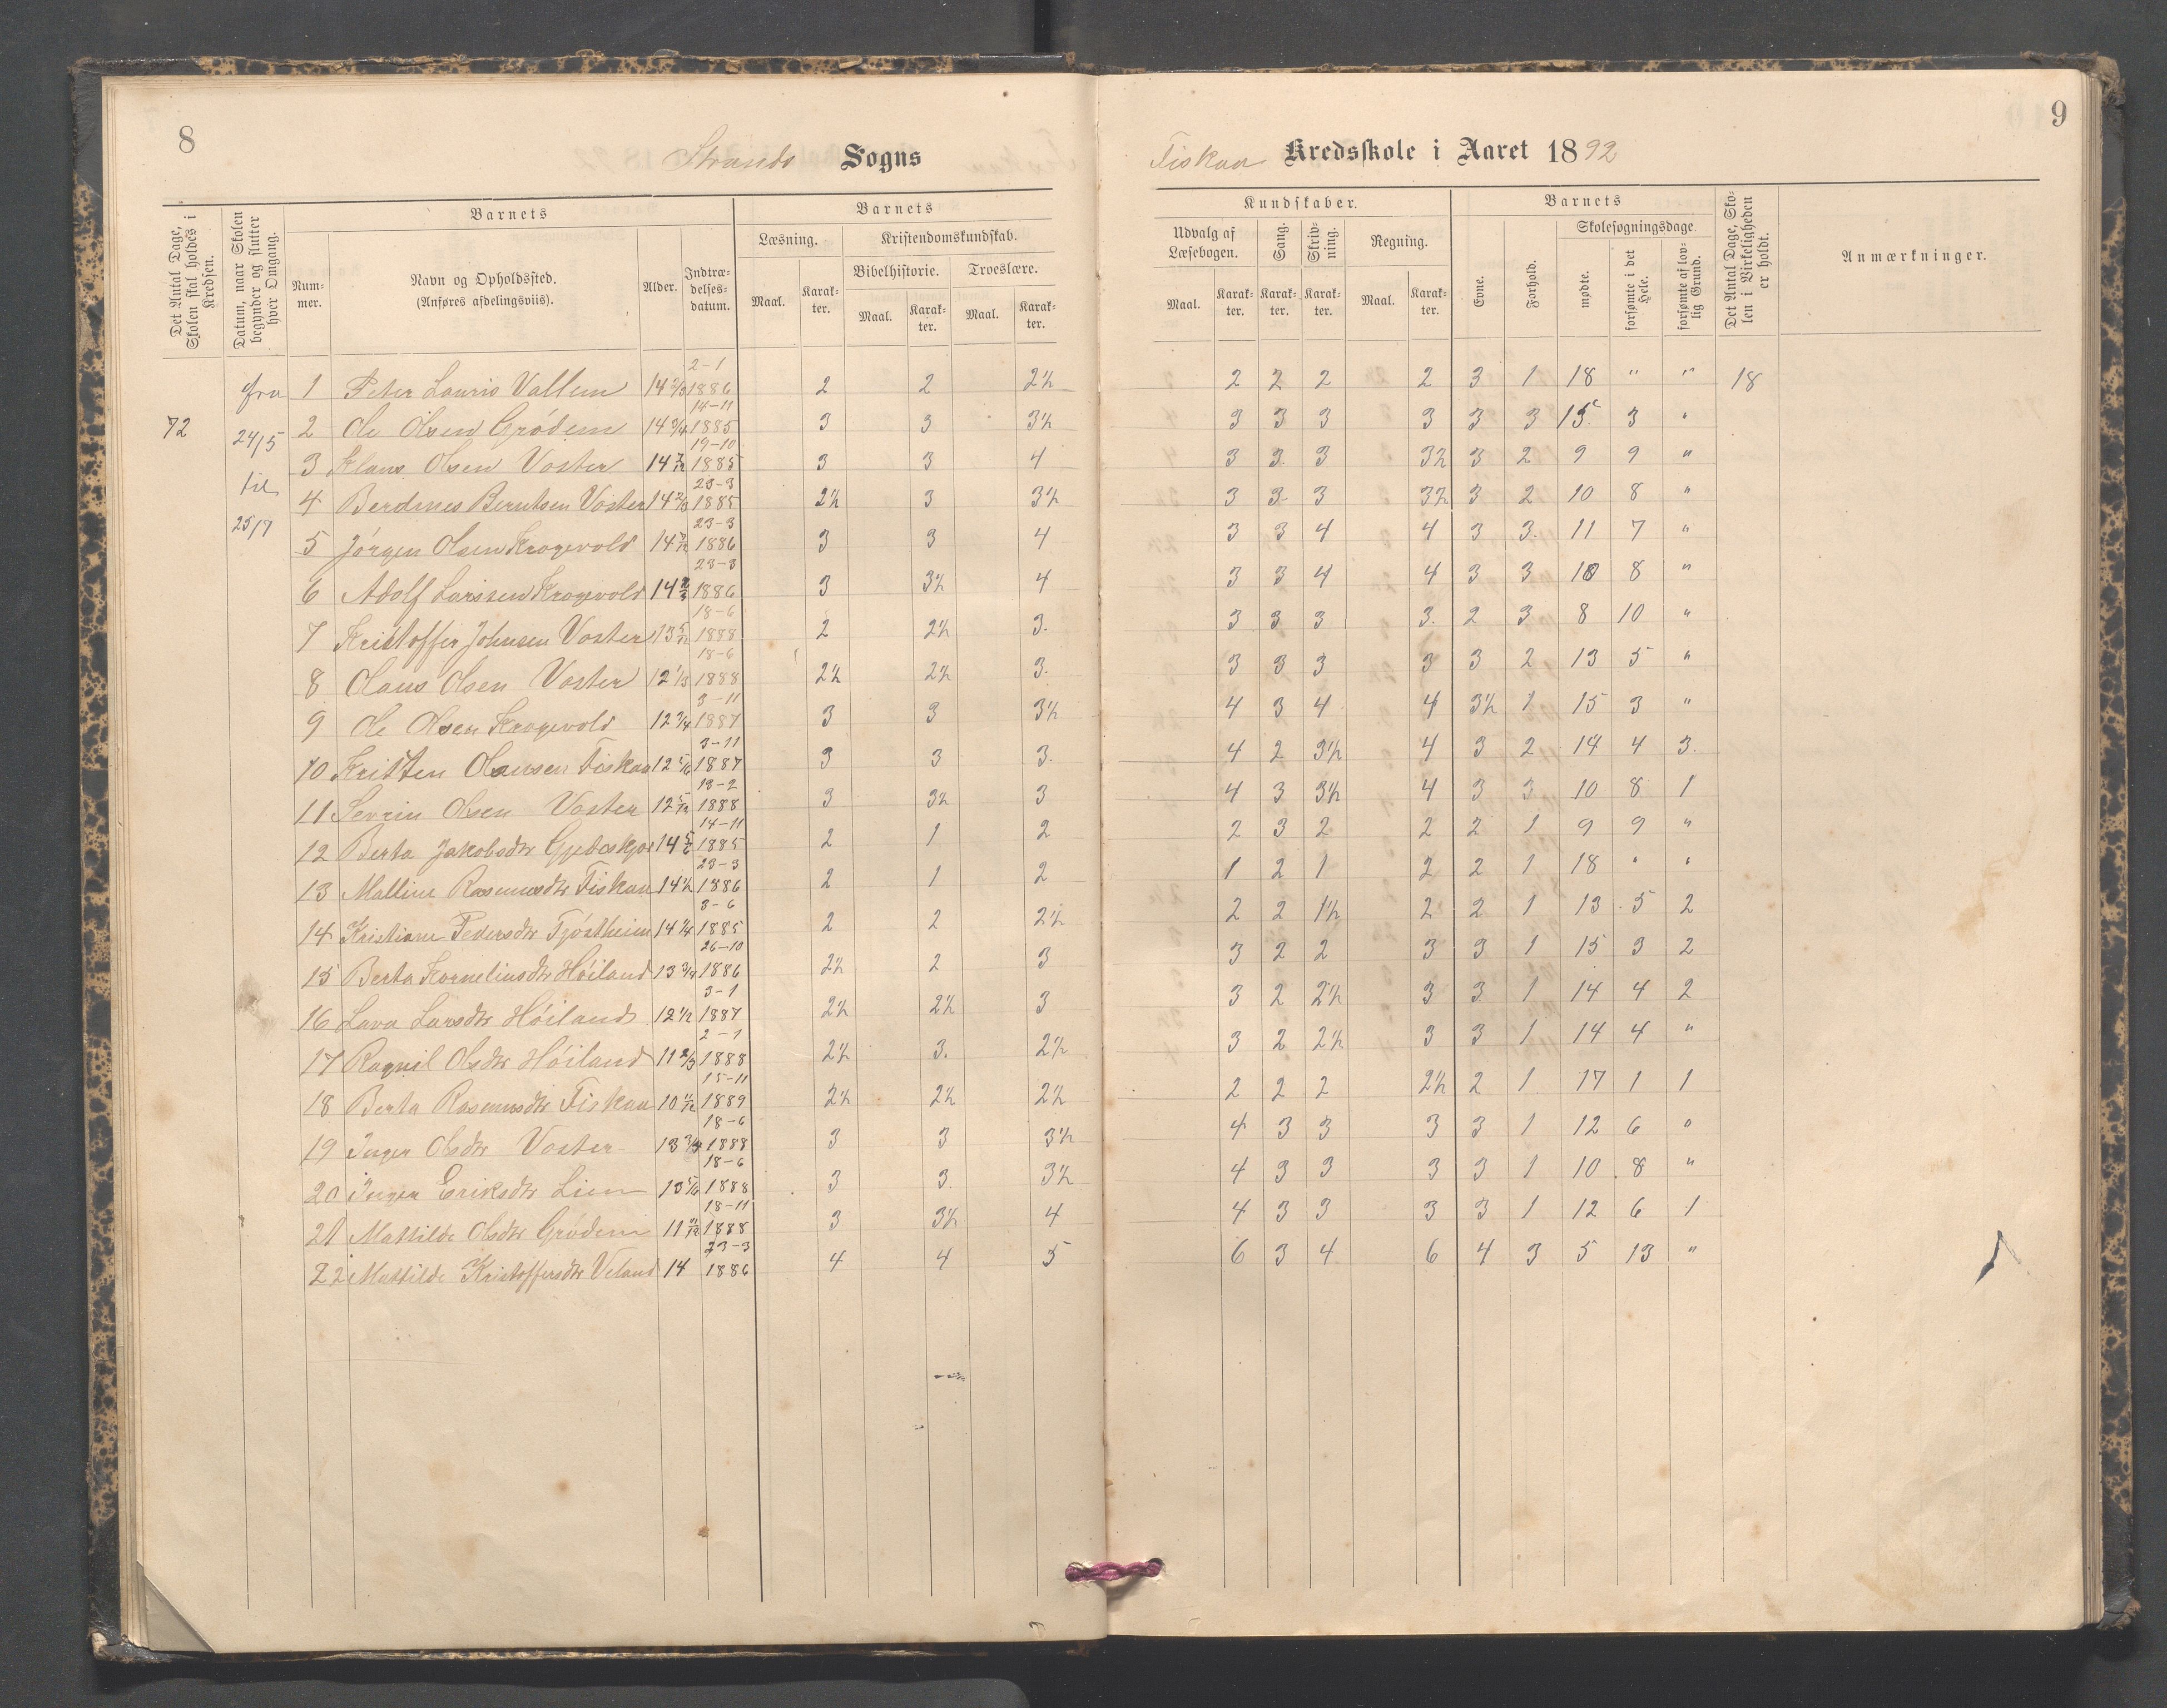 8
Strands Sogns
Det Antal Dage, Skolen skal holdes i Kredsen.
Datum, naar Skolen begynder og slutter hver Omgang.
Barnets
Barnets
Num-mer.
Navn og Opholdssted.
(Anføres afdelingsviis).
Alder.
Indtræ-delses-datum.
Læsning.
Kristendomskundskab.
Bibelhistorie.
Troeslære.
Maal.
Karak-ter.
Maal.
Karak-ter.
Maal.
Karak-ter.
72
fra 24/5 til 25/9
1 Peter Lauris Vallem 14 2/3 2-1 1886 2 2 2½
2 Ole Olsen Grødem 14 3/4 14-11 1885 3 3 3½
3 Klaus Olsen Voster 14 7/12 19-10 1885 3 3 4
4 Berdines Berntsen Voster 14 2/3 23-3 1885 2½ 3 3½
5 Jørgen Olsen Krogevold 14 23-3 1886 3 3 4
6 Adolf Larssen Krogevold 14 23-3 1886 3 3½ 4
7 Kristoffer Johnsen Voster 13 5/12 18-6 1888 2 2½ 3.
8 Olaus Olsen Voster 12 1/3 18-6 1888 2½ 2½ 3.
9 Ole Olsen Krogevold 12 3/4 3-11 1887 3 3 3½
10 Kristen Olausen Fiskaa 12 3-11 1887 3 3 3.
11 Sevrin Olsen Voster 12 5/12 13-2 1888 3 3½ 3
12 Berta Jakobsdtr 14 14-11 1885 2 1 2
13 Malline Rasmusdtr Fiskaa 14½ 23-3 1886 2 1 2
14 Kristiane Pedersdtr Tjøstheim 14 ¼ 3-6 1885 2 2 2½
15 Berta Korneliusdtr Høiland 13 3/4 26-10 1886 2½ 2 3
16 Lava Larsdtr Høiland 12 ½ 3-1 1887 2½ 2½ 3
17 Ragnil Olsdtr Høiland 11 2/3 2-1 1888 2½ 3. 2½
18 Berta Rasmusdtr Fiskaa 10 15-11 1889 2½ 2½ 2½
19 Inger Olsdtr Voster 13 3/4 18-6 1888 3 3 3½
20 Inger Eriksdtr Lien 13 5/6 18-6 1888 3 3 3½
21 Mathilde Olsdtr Grødem 11 18-11 1888 3 3½ 4
22 Mathilde Kristoffersdtr Veland 14 23-3 1886 4 4 5
9
Fiskaa Kredsskole i Aaret 1892
Kundskaber.
Barnets
Udvalg af Læsebogen.
Sang.
Skriv-ning.
Regning.
Evne.
Forhold.
Skolesøgningsdage.
Det Antal Dage, Sko-len i Virkeligheden er holdt.
Anmærkninger.
Maal.
Karak-ter.
Karak-ter.
Karak-ter.
Maal.
Karak-ter.
mødte.
forsømte i det Hele.
forsømte af lov-lig Grund.
2 2 2 2 3 1 18 " " 18
3 3 3 3 3 3 15 3 "
3 3. 3 3½ 3 2 9 9 "
3 3 3 3½ 3 2 10 8 "
3 3 4 4 3 3. 11 7 "
3 3 4 4 3 3 10 8 "
3 3 3 3. 2 3 8 10 "
3 3 3 3 3 2 13 5 "
4 3 4 4 3½ 1 15 3 "
4 2 3½ 4 3 2 14 4 3.
4 3 3½ 4 3 3 10 8 1
2 3 2 2 2 1 9 9 "
1 2 1 2 2 1 18 " "
2 2 1½ 2 2 1 13 5 2
3 2 2 3 3 1 15 3 2
3 2 2½ 3 3 1 14 4 2
3 2 2½ 3 3 1 14 4 "
2 2 2 2½ 2 1 17 1 1
4 3 3 3 3 1 12 6 "
4 3 3 3 3 1 10 8 "
4 3 3 3 3 1 12 6 1
6 3 4 6 4 3 5 13 "